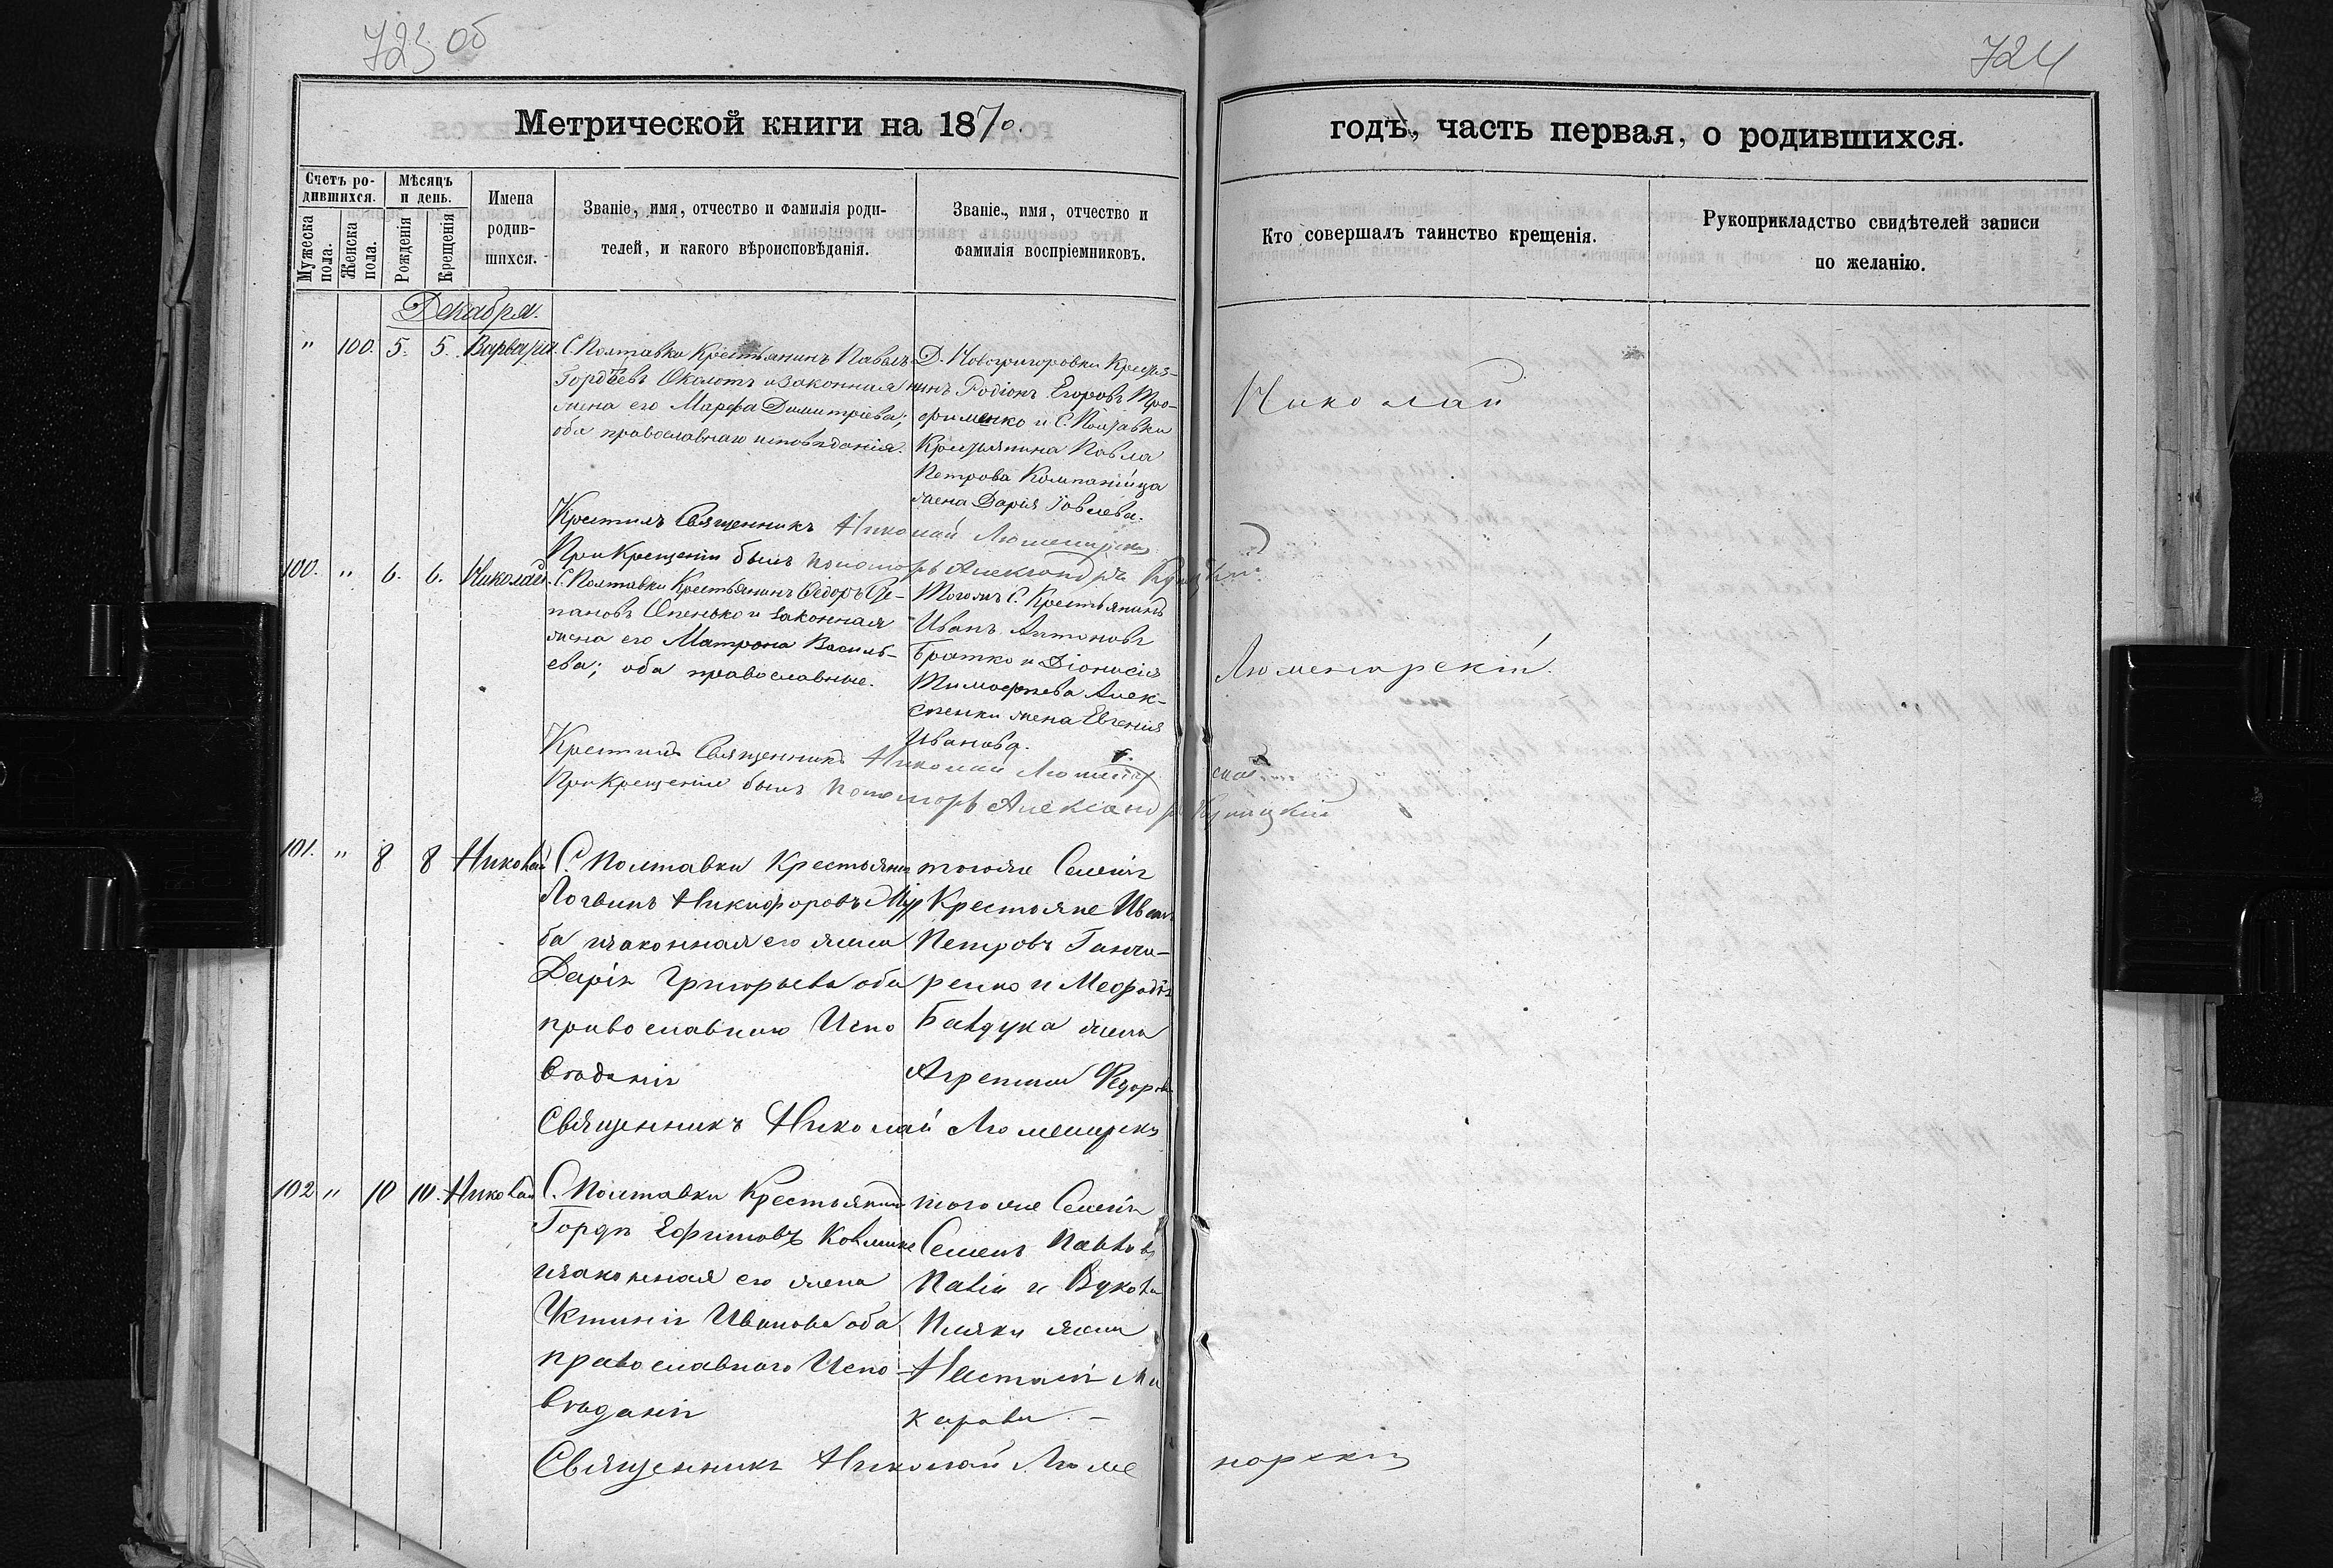 723 об
724
Метрической книги на 1870.
годъ, часть первая, о родившихся.
Счетъ ро-
дившихся.
Мужеска пола.
Женска пола.
Мѣсяцъ
и день.
Рожденія
Крещенія
Имена
родив-
шихся.
Званіе, имя, отчество и фамилія роди-
телей, и какого вѣроисповѣданія.
Званіе, имя, отчество и
фамилія воспріемниковъ.
Кто совершалъ таинство крещенія.
Рукоприкладство свидѣтелей записи
по желанію.
Декабря.
" 100. 5. 5. Варвара.
С. Полтавки Крестьянинъ Павелъ
Гордѣевъ Околотъ и законная
жена его Марфа Димитріева;
оба православнаго исповѣданія.
Д. Новогригоровки Крестья-
нинъ Родіонъ Егоровъ Тро-
фименко и С. Полтавки
Крестьянина Павла
Петрова Компанійца
жена Дарія Іовлева.
Николай
Крестилъ Священникъ Николай Люменарскій
При Крещеніи былъ пономарь Александръ
100. " 6. 6. Николай.
С. Полтавки Крестьянинъ Ѳедоръ Сте-
пановъ Опенько и законная
жена его Матрона Василь-
ева; оба православные.
Тогожъ С. Крестьянинъ
Иванъ Антоновъ
Братко и Діонисія
Тимофѣева Алек-
сѣенки жена Евгенія
Иванова.
Люменарскій.
Крестилъ Священникъ Николай Люменарскій
При Крещеніи былъ пономарь Александръ
101. " 8 8 Николай
С. Полтавки Крестьянинъ
Логвинъ Никифоровъ
ба изаконная его жена
Дарія Григорьева оба
православнаго Испо
вѣданія
тогоже Селенія
Крестьяне Иванъ
Петровъ Ганча-
ренко и Мефодія
Байдука жена
Агрепина Федорова
Священникъ Николай Люменарскій
102 " 10 10. Николай
С. Полтавки Крестьянинъ
Гордѣй Ефимовъ
изаконная его жена
Устинія Иванова оба
православнаго Испо
вѣданія
тогоже Селенія
Семенъ Павловъ
Палій и Вукола
жена
Настасія Ма
карова. –
Священникъ Николай Люме нарскій